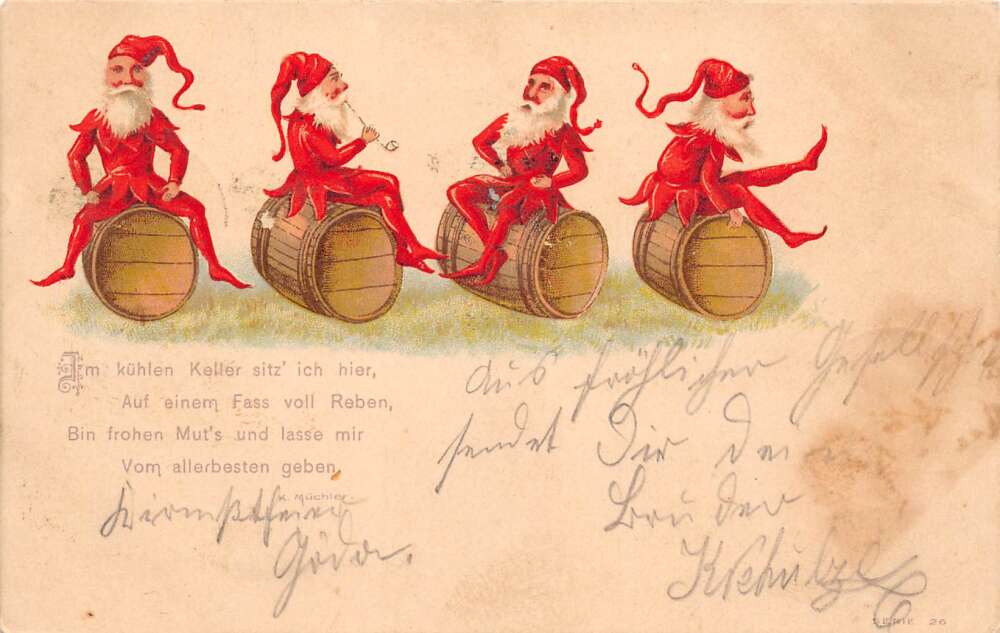 Im kühlen Keller sitz' ich hier,
Auf einem Fass voll Reben,
Bin frohen Mut's und lasse mir
Vom allerbesten geben.
K. Müchler.
Aus fröhlicher Gesellschaft
sendet Dir Dein
Bruder
KSchulze
Kirmstfeier
Göda.
SERIE 26